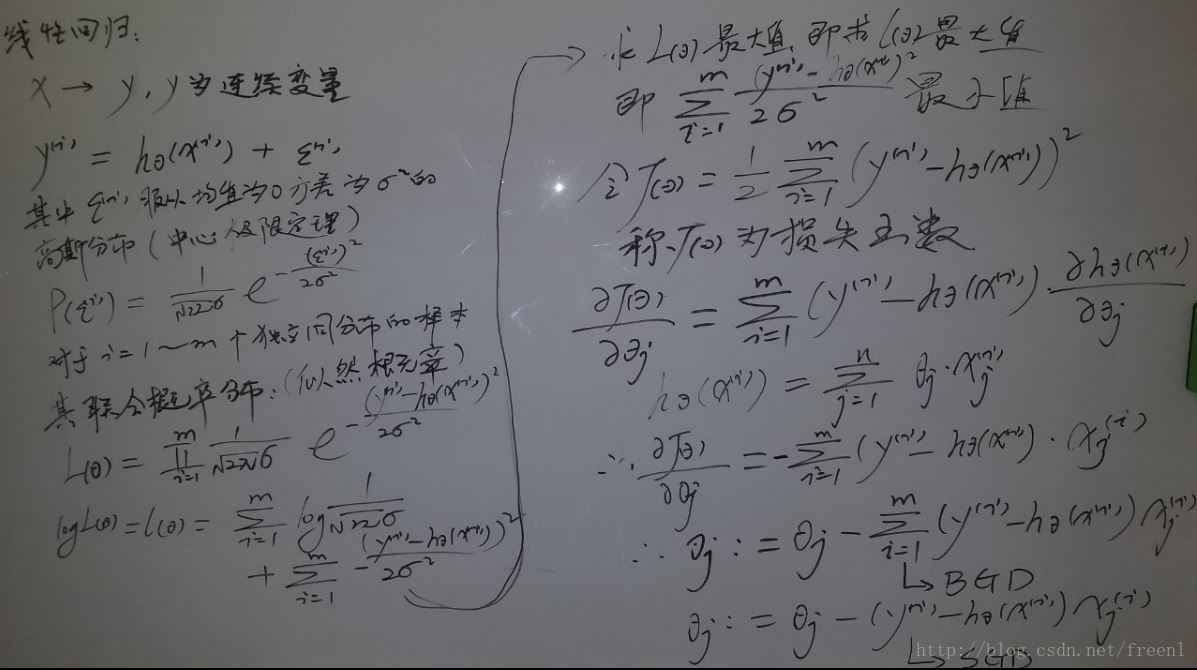 线性回归:
x → y, y为连续变量
y⁽ⁱ⁾ = hθ(x⁽ⁱ⁾) + ε⁽ⁱ⁾
其中 ε⁽ⁱ⁾ 服从均值为0方差为σ²的
高斯分布(中心极限定理)
P(ε⁽ⁱ⁾) = 1/(√2π σ) e^(-(ε⁽ⁱ⁾)²/2σ²)
对于 i=1~m 个独立同分布的样本
其联合概率分布:(似然概率)
L(θ) = ∏_{i=1}^{m} 1/(√2π σ) e^(-(y⁽ⁱ⁾-hθ(x⁽ⁱ⁾))²/2σ²)
logL(θ) = l(θ) = ∑_{i=1}^{m} log 1/(√2π σ)
+ ∑_{i=1}^{m} -(y⁽ⁱ⁾-hθ(x⁽ⁱ⁾))²/2σ²
求 L(θ) 最大值, 即求 l(θ) 最大值
即 ∑_{i=1}^{m} (y⁽ⁱ⁾-hθ(x⁽ⁱ⁾))²/2σ² 最小值
令 J(θ) = 1/2 ∑_{i=1}^{m} (y⁽ⁱ⁾-hθ(x⁽ⁱ⁾))²
称 J(θ) 为损失函数
∂J(θ)/∂θj = ∑_{i=1}^{m} (y⁽ⁱ⁾-hθ(x⁽ⁱ⁾)) · ∂hθ(x⁽ⁱ⁾)/∂θj
hθ(x⁽ⁱ⁾) = ∑_{j=1}^{n} θj · xj⁽ⁱ⁾
∴ ∂J(θ)/∂θj = -∑_{i=1}^{m} (y⁽ⁱ⁾-hθ(x⁽ⁱ⁾)) · xj⁽ⁱ⁾
∴ θj := θj - ∑_{i=1}^{m} (y⁽ⁱ⁾-hθ(x⁽ⁱ⁾)) xj⁽ⁱ⁾
↳ BGD
θj := θj - (y⁽ⁱ⁾-hθ(x⁽ⁱ⁾)) xj⁽ⁱ⁾
↳ SGD
http://blog.csdn.net/freenl